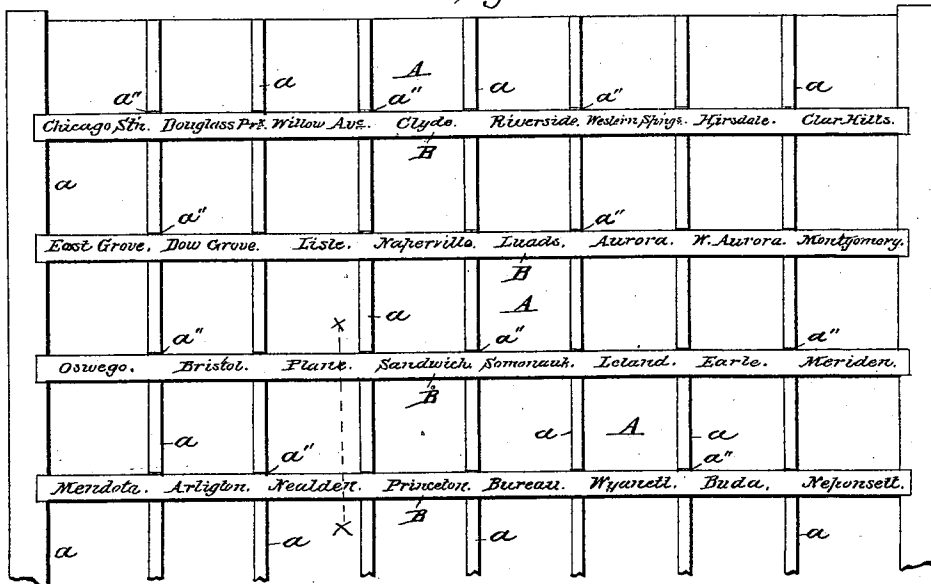 a A a a
a" a" a"
Chicago Stn. Douglass Prk. Willow Ave. Clyde. Riverside. Western Spings. Hinsdale. Clar Hills.
B
a a" a"
East Grove. Dow Grove. Lisle. Naperville. Luads. Aurora. W. Aurora. Montgomery.
B
A
X a
a" a" a"
Oswego. Bristol. Plane. Sandwich. Somonauk. Leland. Earle. Meriden.
B
a a A a
a" a"
Mendota. Arligton. Nealden. Princeton. Bureau. Wyanett. Buda. Neponsett.
B
X
a a a a